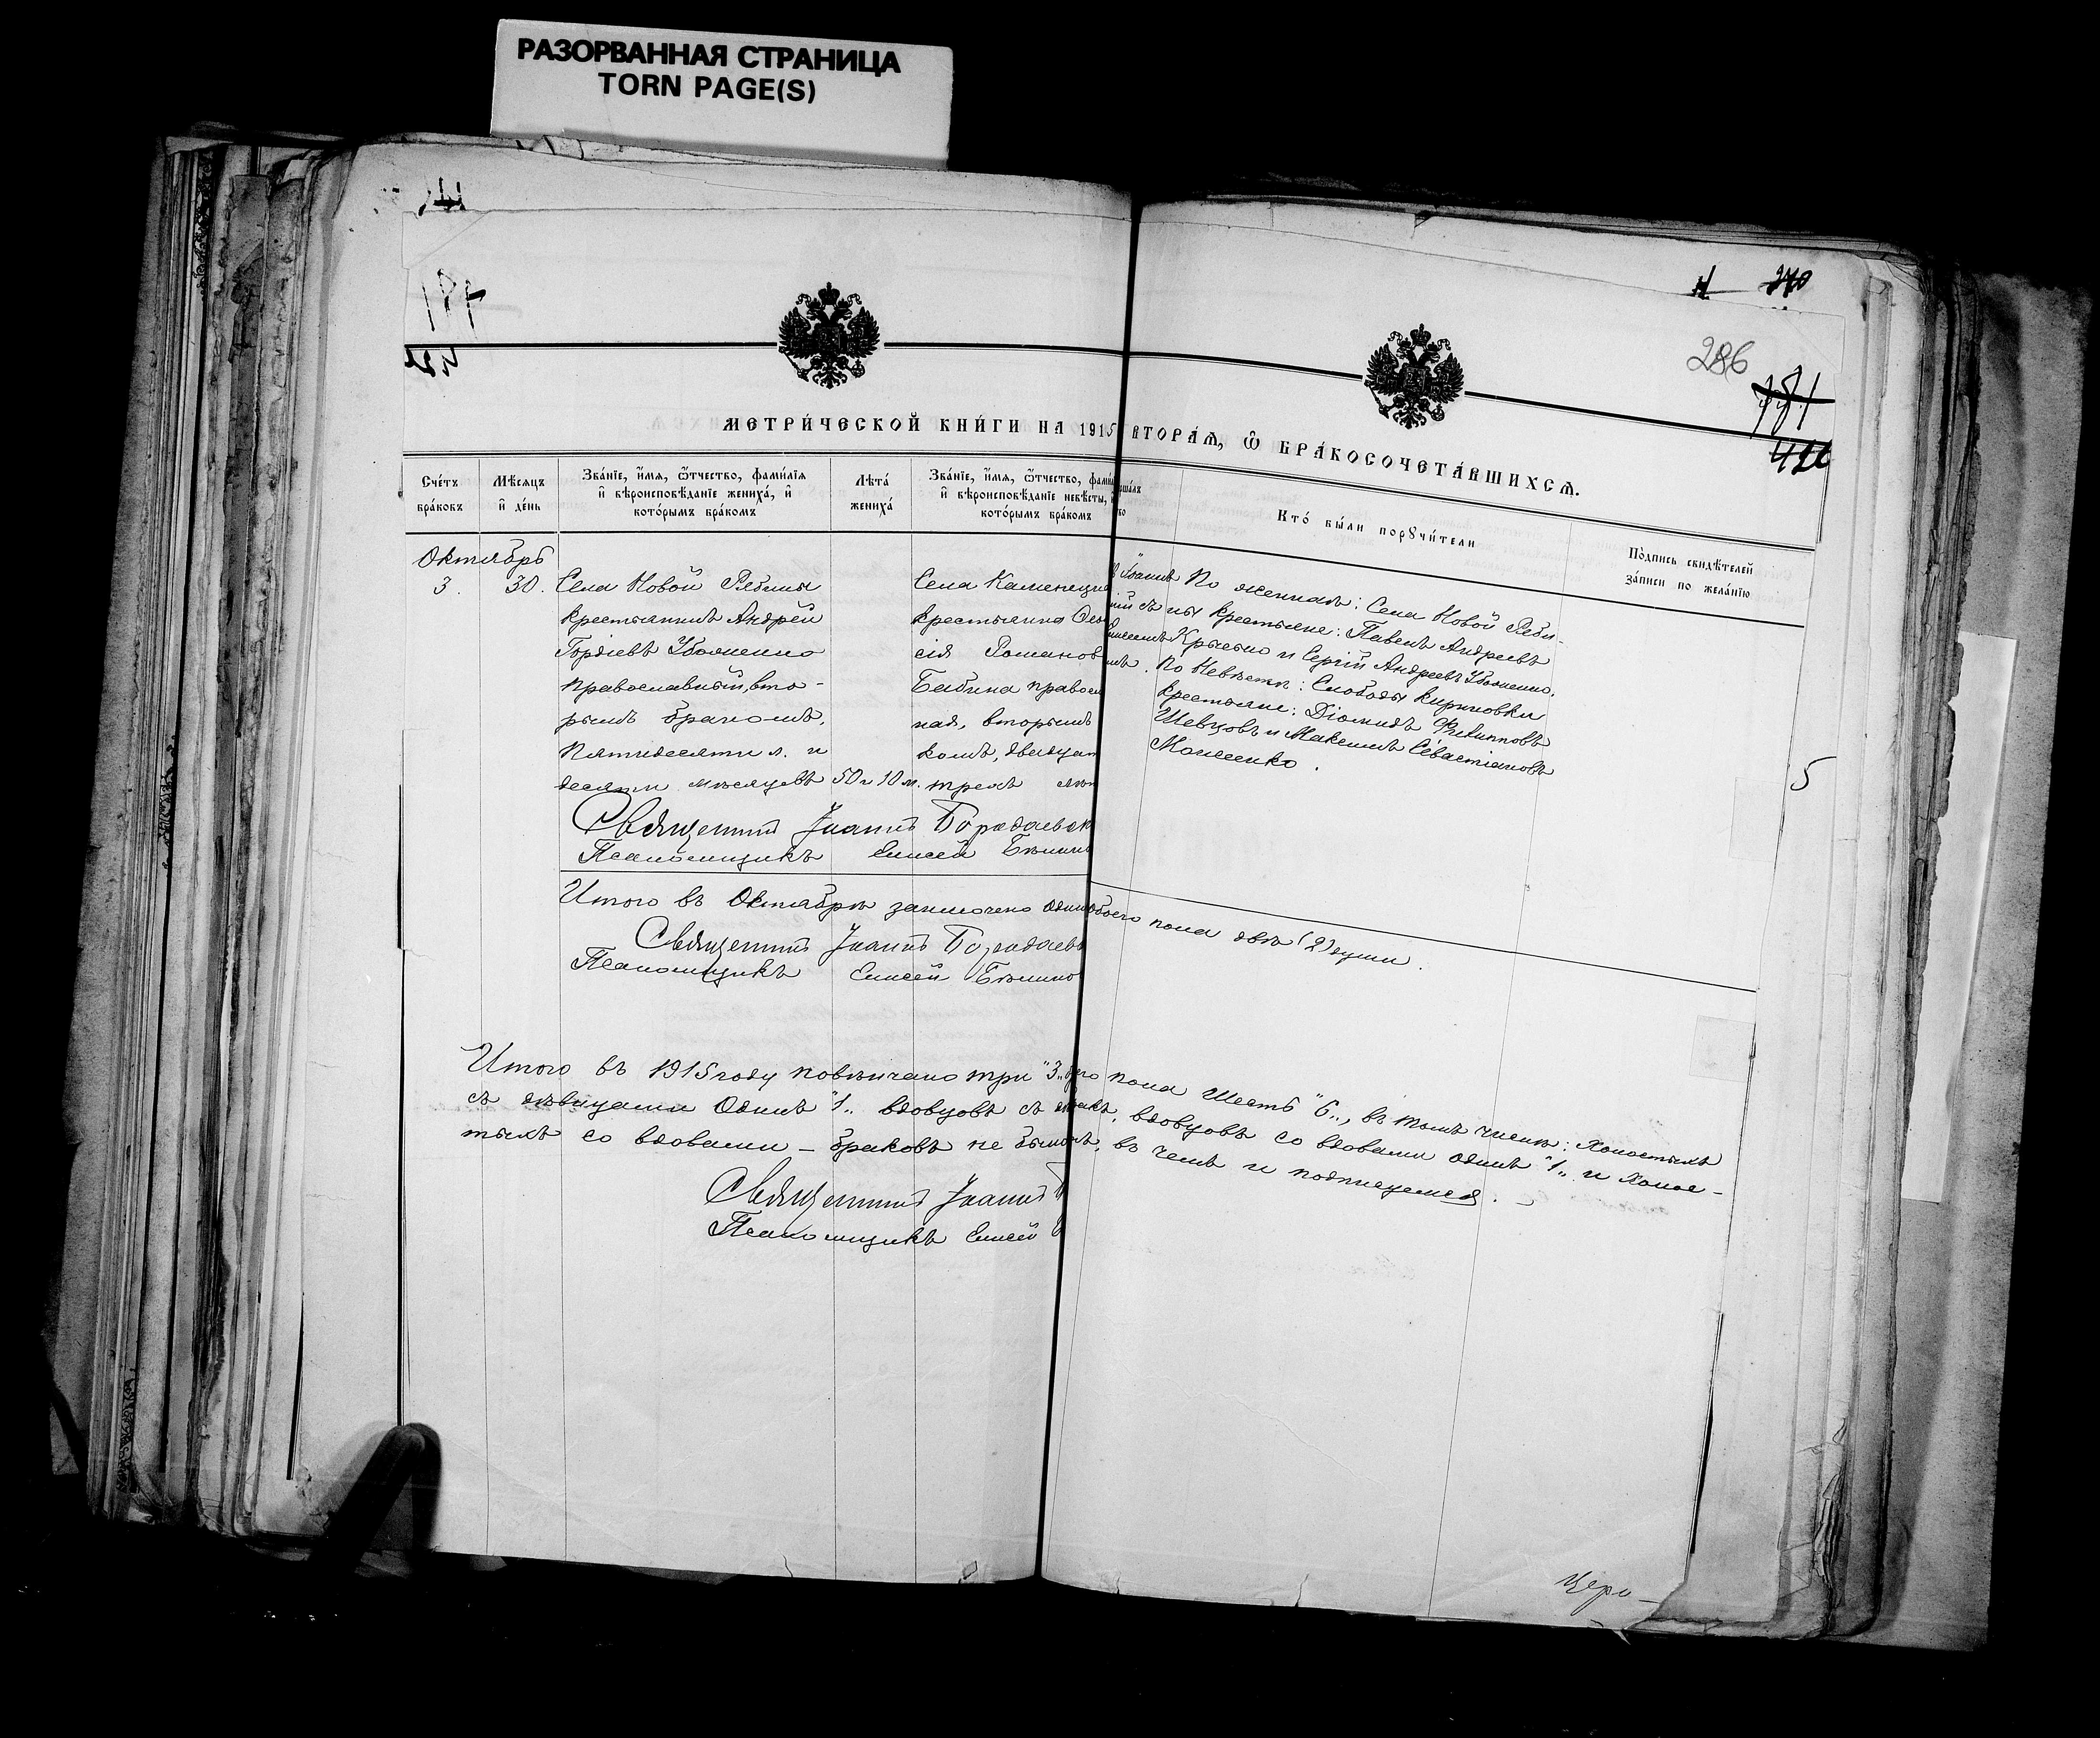 РАЗОРВАННАЯ СТРАНИЦА
TORN PAGE(S)
286
426
МЕТРИ́ЧЕСКОЙ КНИ́ГИ НА 1915
ВТОРА́Ѧ, Ѿ БРА́КОСОЧЕТА́ВШИХСѦ.
Сче́тъ бра́ковъ
Мѣ́сяцъ и҆ де́нь
Зва́нїе, и҆́мя, ѻ҆́тчество, фами́лїя и҆ вѣроисповѣ́данїе жениха́, и҆ кото́рымъ бра́комъ
Лѣ́та жениха́
Зва́нїе, и҆́мя, ѻ҆́тчество, фами́ и҆ вѣроисповѣ́данїе невѣ́сты, кото́рымъ бра́комъ
Кто́ бы́ли порꙋчи́тели
По́дпись свидѣ́телей за́писи по жела́нїю
Октябрь
3. 30.
Села Новой Рябины
крестьянинъ Андрей
Гордіевъ Убоженко
православный, вто-
рымъ бракомъ,
пятидесяти л. и
десяти мѣсяцевъ
50 и 10 м.
Села Каменецка
крестьянка
сія Романов
Бабина правосл
ная, вторымъ
комъ, двадцат
трехъ лѣт
По женихѣ: Села Новой Ряби-
ны крестьяне: Павелъ Андреевъ
и Сергій Андреевъ Убоженко.
По Невѣстѣ: Слободы Кириковки
крестьяне: Діомидъ Филипповъ
Шевцовъ и Максимъ Севастіановъ
Священникъ Іоаннъ
Псаломщикъ Елисей
Итого въ Октябрѣ заключено один
обоего пола двѣ (2) души.
Священникъ Іоаннъ
Псаломщикъ Елисей
5
Итого въ 1915 году повѣнчано три "3"
пола шесть "6", въ томъ числѣ: холостыхъ
съ дѣвицами Одинъ "1", вдовцовъ съ
вдовцовъ со вдовами одинъ "1" и холос-
тыхъ со вдовами — браковъ не было
въ чемъ и подписуемся. —
Священникъ Іоаннъ
Псаломщикъ Елисей
Церк-